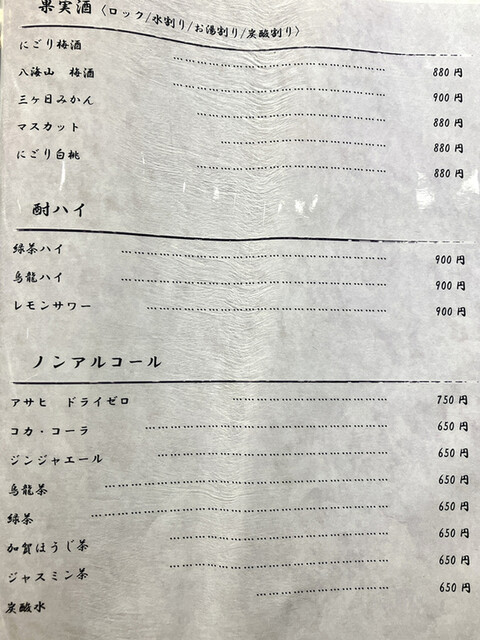 果実酒〈ロック/水割り/お湯割り/炭酸割り〉
にごり梅酒 ………………………… 880円
八海山 梅酒 ………………………… 900円
三ヶ日みかん ………………………… 880円
マスカット ………………………… 880円
にごり白桃 ………………………… 880円
酎ハイ
緑茶ハイ ………………………… 900円
烏龍ハイ ………………………… 900円
レモンサワー ………………………… 900円
ノンアルコール
アサヒ ドライゼロ ………………………… 750円
コカ・コーラ ………………………… 650円
ジンジャエール ………………………… 650円
烏龍茶 ………………………… 650円
緑茶 ………………………… 650円
加賀ほうじ茶 ………………………… 650円
ジャスミン茶 ………………………… 650円
炭酸水 ………………………… 650円